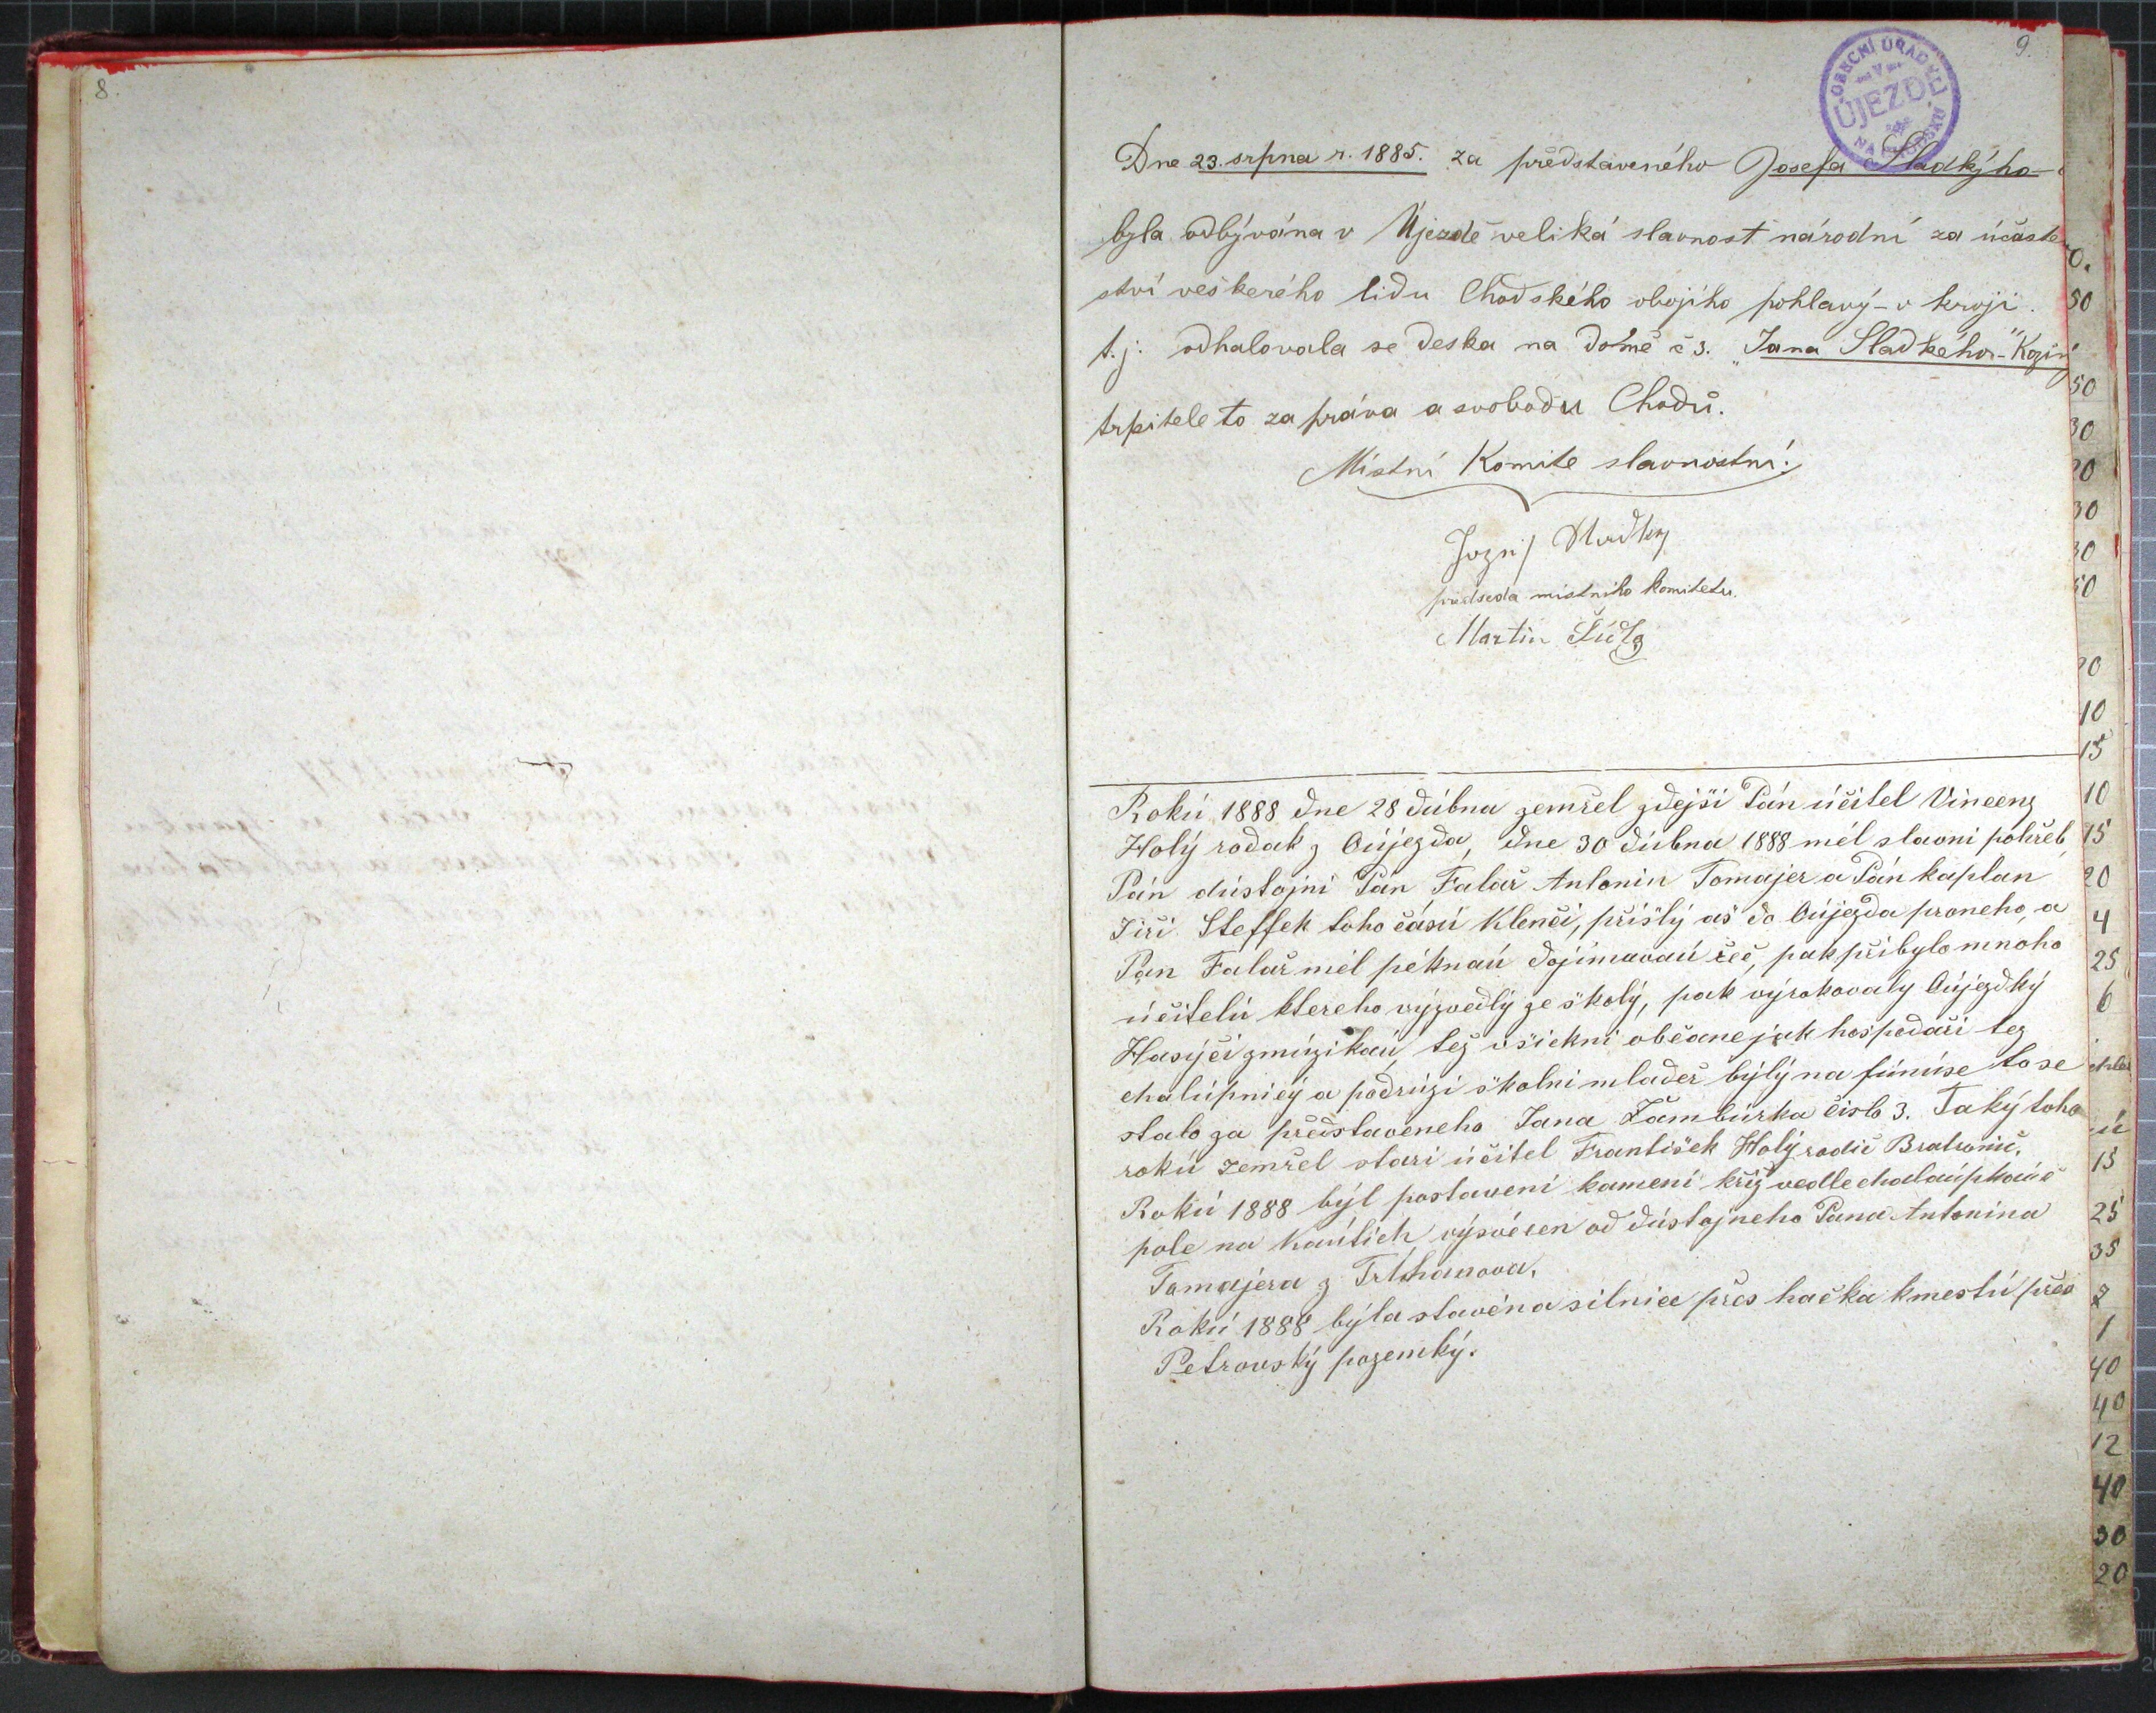 8.
9.
OBECNÍ ÚŘAD
V
ÚJEZDĚ
NA
Dne 23. srpna r. 1885. za představeného Josefa Sladkýho
byla odbývána v Újezdě veliká slavnost národní za účasten
ství veškerého lidu Chodského obojího pohlavý - v kroji.
t.j. odhalovala se deska na domě č 3. „Jana Sladkého-"Koziny
trpitele to za práva a svobodu Chodů.
Místní Komite slavnostní:
Jozef Sladky
předseda místního komitetu.
Martin
Rokú 1888 dne 28 dúbna zemřel zdejší Pán účitel Vincenz
Holý rodak z Oújezda, dne 30 dúbna 1888 měl slavni pohřeb,
Pán dústojni Pán Falař Antonin Tomajer a Pán kaplan
Jiři Steffek toho časú Klenči, přišlý aš do Oújezda proneho, a
Pan Falař měl pěknaú dojimavaú řeč, pak přibylo mnoho
účitelú ktereho výzvedlý ze školý, pak výrokovaly Oújezdký
Hasýči zmúzikaú, tež všickni občane jak hospodaři tez
chalúpnicý a podrúzi školni mladeš býlý na fúnúse to se
stalo za představeneho Jana Žambúrka čislo 3. Taký toho
rokú zemřel stari účitel František Holý rodič Bratronic.
Rokú 1888 býl postaveni kameni křiž vedlechalaúpkaú č
pole na Kaútich výsvěcen od dústojneho Pana Antonina
Tomajera z Trhhanova.
Rokú 1888 býla stavěna silnice přes hačka kmestú přes
Petrovský pozemký.
0.
50
50
30
20
30
30
50
20
10
15
10
15
20
4
25
6
ú
15
25
35
2
1
40
40
12
40
30
20